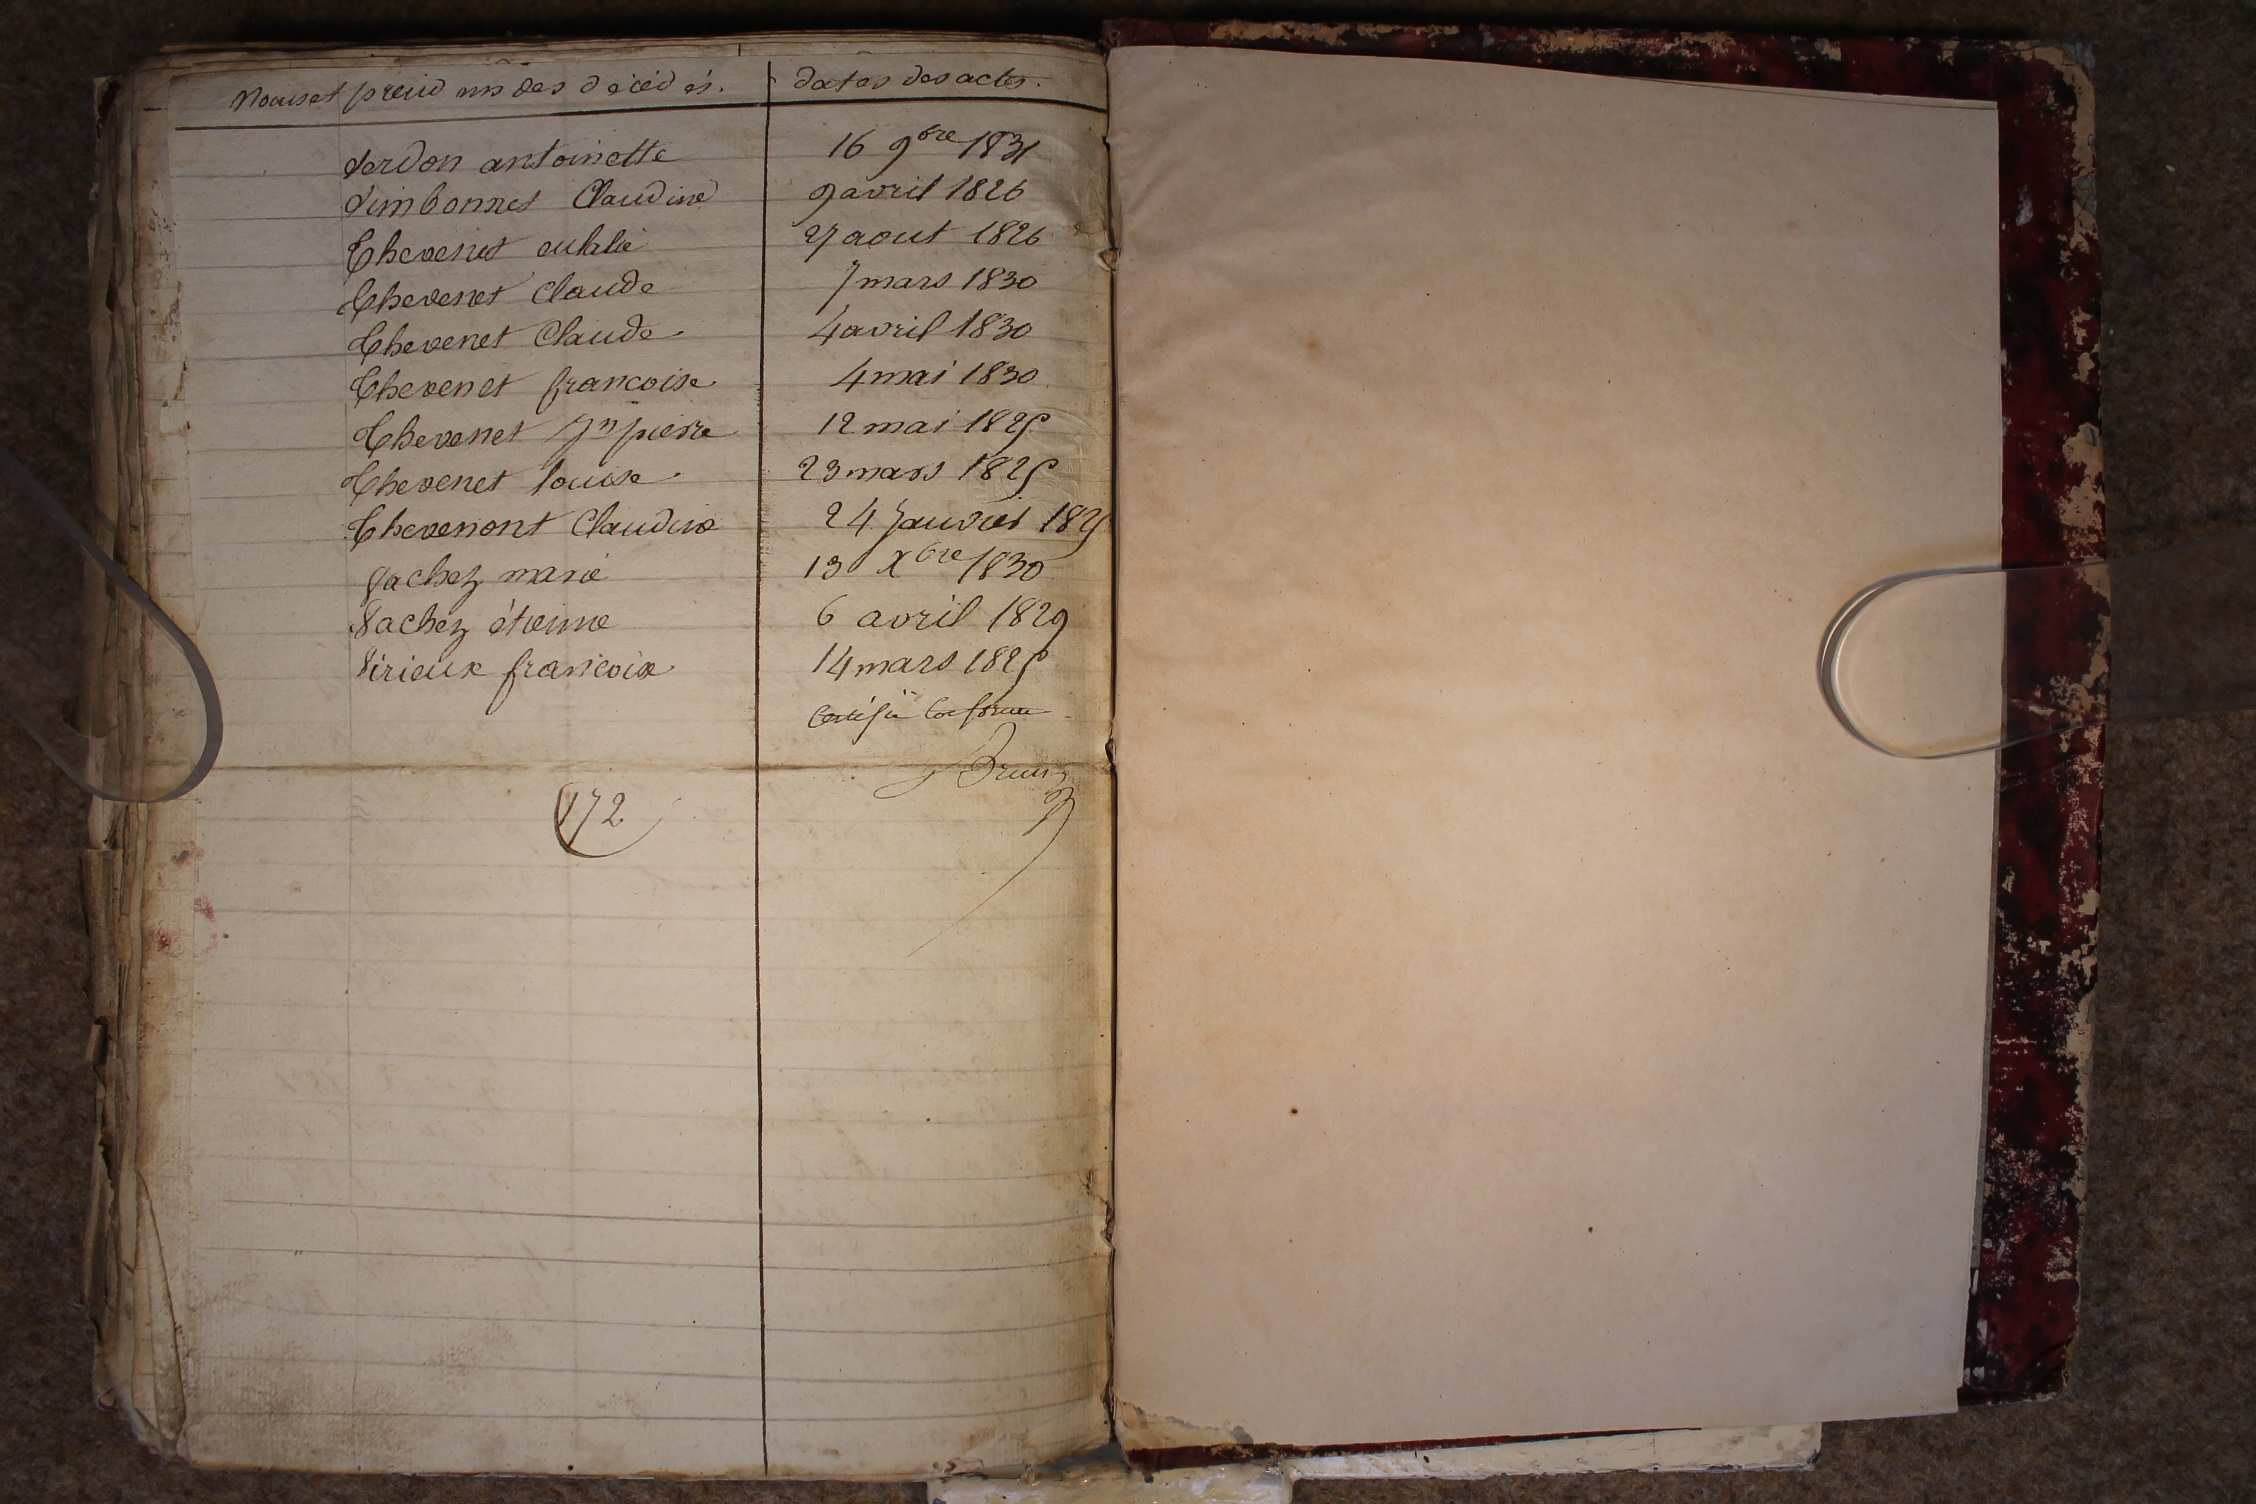 Noms et prénoms des décédés. dates des actes.
Verdon antoinette 16 9bre 1831
Simbonnet Claudine 9 avril 1826
Thevenet eulalie 27 aout 1826
Thevenet Claude 7 mars 1830
Thevenet Claude 4 avril 1830
Thevenet francoise 4 mai 1830
Thevenet Jn pierre 12 mai 1825
Thevenet louise 23 mars 1825
Thevenont Claudine 24 Janvier 1825
Vachez marie 13 Xbre 1830
Vachez étienne 6 avril 1829
Virieux francoise 14 mars 1825
Certifié Conforme
Brun
172